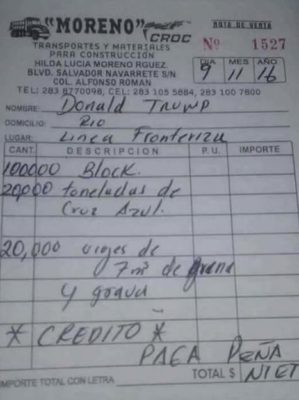 "MORENO"
CROC
NOTA DE VENTA
TRANSPORTES Y MATERIALES
PARA CONSTRUCCIÓN
Nº 1527
HILDA LUCIA MORENO RGUEZ.
BLVD. SALVADOR NAVARRETE S/N
COL. ALFONSO ROMAN
TEL: 283 8770098, CEL: 283 105 5884, 283 100 7800
DIA MES AÑO
9 11 16
NOMBRE: Donald Trump
DOMICILIO: Rio
LUGAR: Linea Fronteriza
CANT. DESCRIPCION P.U. IMPORTE
100000 Block.
20000 toneladas de
Cruz Azul.
20,000 viajes de
7m³ de arena
y grava
* CREDITO *
PAGA PEÑA
IMPORTE TOTAL CON LETRA TOTAL $ NIET